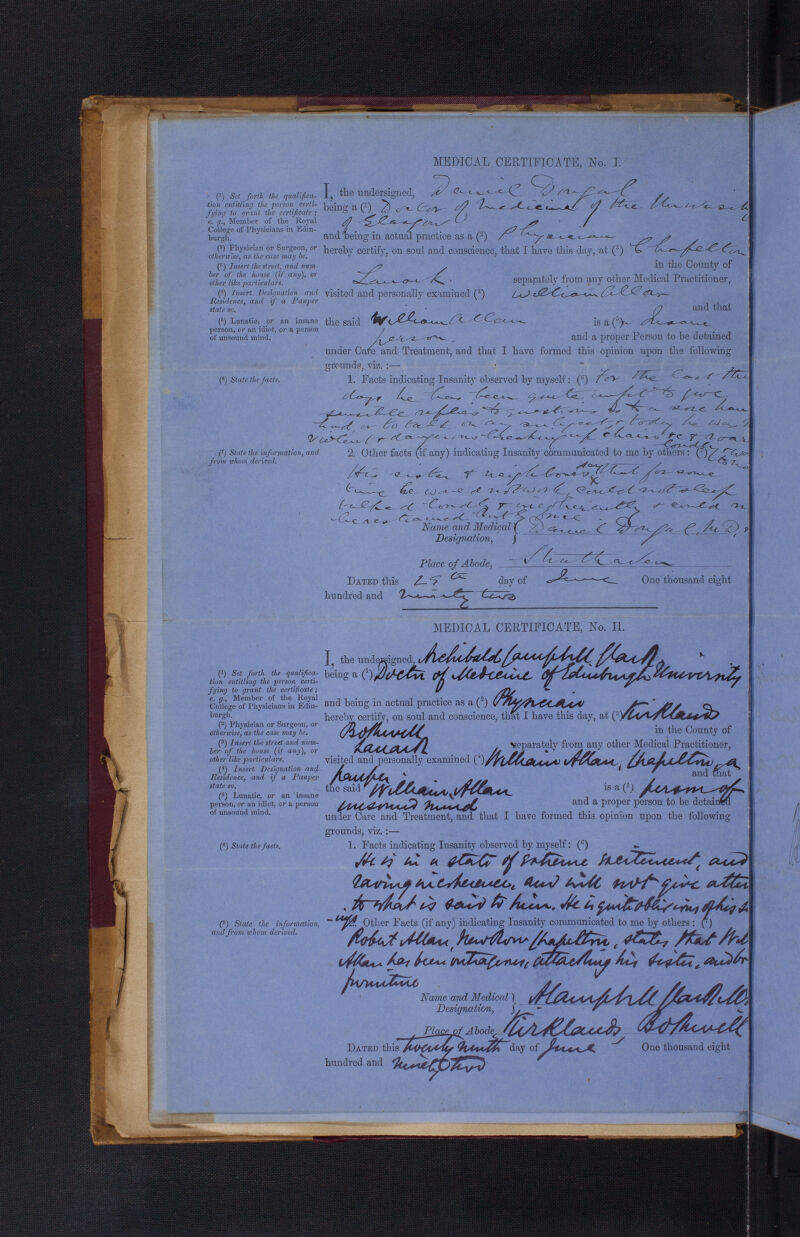 MEDICAL CERTIFICATE, No. I.
(¹) Set forth the qualification
entitling the person certifying
to grant the certificate;
e. g., Member of the Royal
College of Physicians in Edinburgh.
(²) Physician or Surgeon, or
otherwise, as the case may be.
(³) Insert the street, and number
of the house (if any), or
other like particulars.
(⁴) Insert Designation and
Residence, and if a Pauper
state so.
(⁵) Lunatic, or an insane
person, or an idiot, or a person
of unsound mind.
I, the undersigned, Daniel Dougal
being a (¹) Doctor of Medicine of the University
of Glasgow
and being in actual practice as a (²) Physician
hereby certify, on soul and conscience, that I have this day, at (³) Chapelton
in the County of
Lanark. separately from any other Medical Practitioner,
visited and personally examined (⁴) William Allan
and that
the said William Allan is a (⁵) Insane
person. and a proper Person to be detained
under Care and Treatment, and that I have formed this opinion upon the following
grounds, viz. :—
(⁶) State the facts.
1. Facts indicating Insanity observed by myself: (⁶) For the last
days he has been quite unfit to give
sensible replies to questions as to a sore
had or to talk on any subject, today he was
violent & dangerous breaking up chairs &c & roar
loudly
(⁷) State the information, and
from whom derived.
2. Other facts (if any) indicating Insanity communicated to me by others: (⁷)
His sister & neighbours say that for some
time he could not sleep
talked loudly & incoherently & could
be restrained
Name and Medical Designation, Daniel Dougal, M.D.
Place of Abode, Strathaven
DATED this 29th day of June One thousand eight
hundred and ninety two
MEDICAL CERTIFICATE, No. II.
(¹) Set forth the qualification
entitling the person certifying
to grant the certificate;
e. g., Member of the Royal
College of Physicians in Edinburgh.
(²) Physician or Surgeon, or
otherwise, as the case may be.
(³) Insert the street and number
of the house (if any), or
other like particulars.
(⁴) Insert Designation and
Residence, and if a Pauper
state so.
(⁵) Lunatic, or an insane
person, or an idiot, or a person
of unsound mind.
I, the undersigned, Archibald Campbell Clark
being a (¹) Doctor of Medicine of Edinburgh University
and being in actual practice as a (²) Physician
hereby certify, on soul and conscience, that I have this day, at (³) Kirklands
Bothwell in the County of
Lanark separately from any other Medical Practitioner,
visited and personally examined (⁴) William Allan, Chapelton, a
pauper and that
the said William Allan is a (⁵) person of
unsound mind and a proper person to be detained
under Care and Treatment, and that I have formed this opinion upon the following
grounds, viz. :—
(⁶) State the facts.
1. Facts indicating Insanity observed by myself: (⁶)
He is in a state of extreme excitement, and
raving incoherence, and will not give atten
to what is said to him. He is quite oblivious of his
(⁷) State the information,
and from whom derived.
2. Other Facts (if any) indicating Insanity communicated to me by others: (⁷)
Robert Allan, New Row Chapelton, states that Wil
Allan has been outrageous, attacking his sister, and br
furniture
Name and Medical Designation, A Campbell Clark
Place of Abode, Kirklands, Bothwell
DATED this twenty ninth day of June One thousand eight
hundred and ninety two